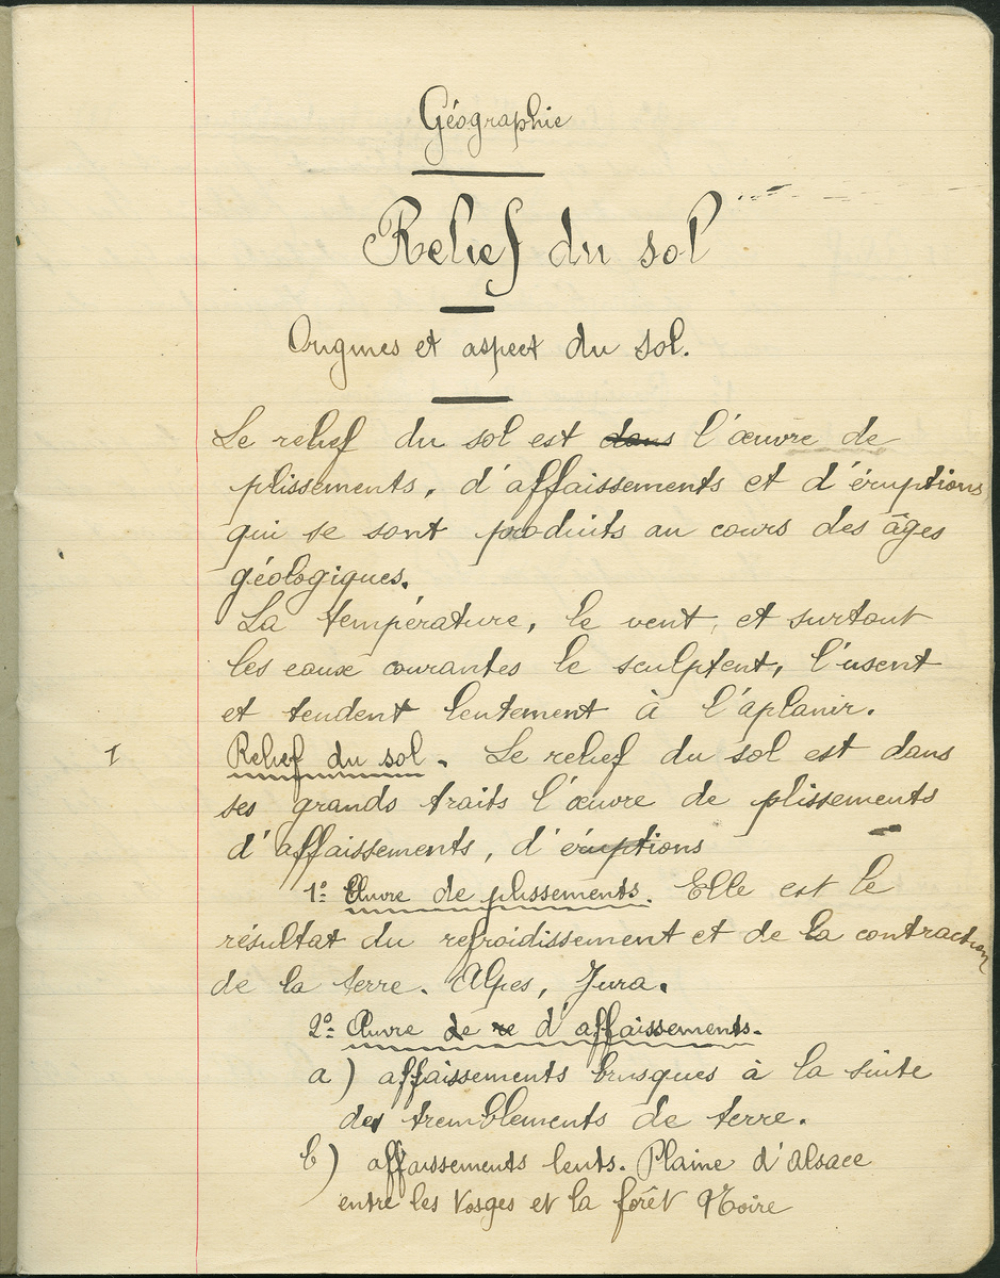 Géographie
Relief du sol
Origines et aspect du sol.
Le relief du sol est dans l'œuvre de
plissements, d'affaissements et d'éruptions
qui se sont produits au cours des âges
géologiques.
La température, le vent, et surtout
les eaux courantes le sculptent, l'usent
et tendent lentement à l'aplanir.
1 Relief du sol. Le relief du sol est dans
ses grands traits l'œuvre de plissements
d'affaissements, d'éruptions
1º: Œuvre de plissements. Elle est le
résultat du refroidissement et de la contraction
de la terre. Alpes, Jura.
2º: Œuvre de re d'affaissements.
a) affaissements brusques à la suite
des tremblements de terre.
b) affaissements lents. Plaine d'Alsace
entre les Vosges et la forêt Noire